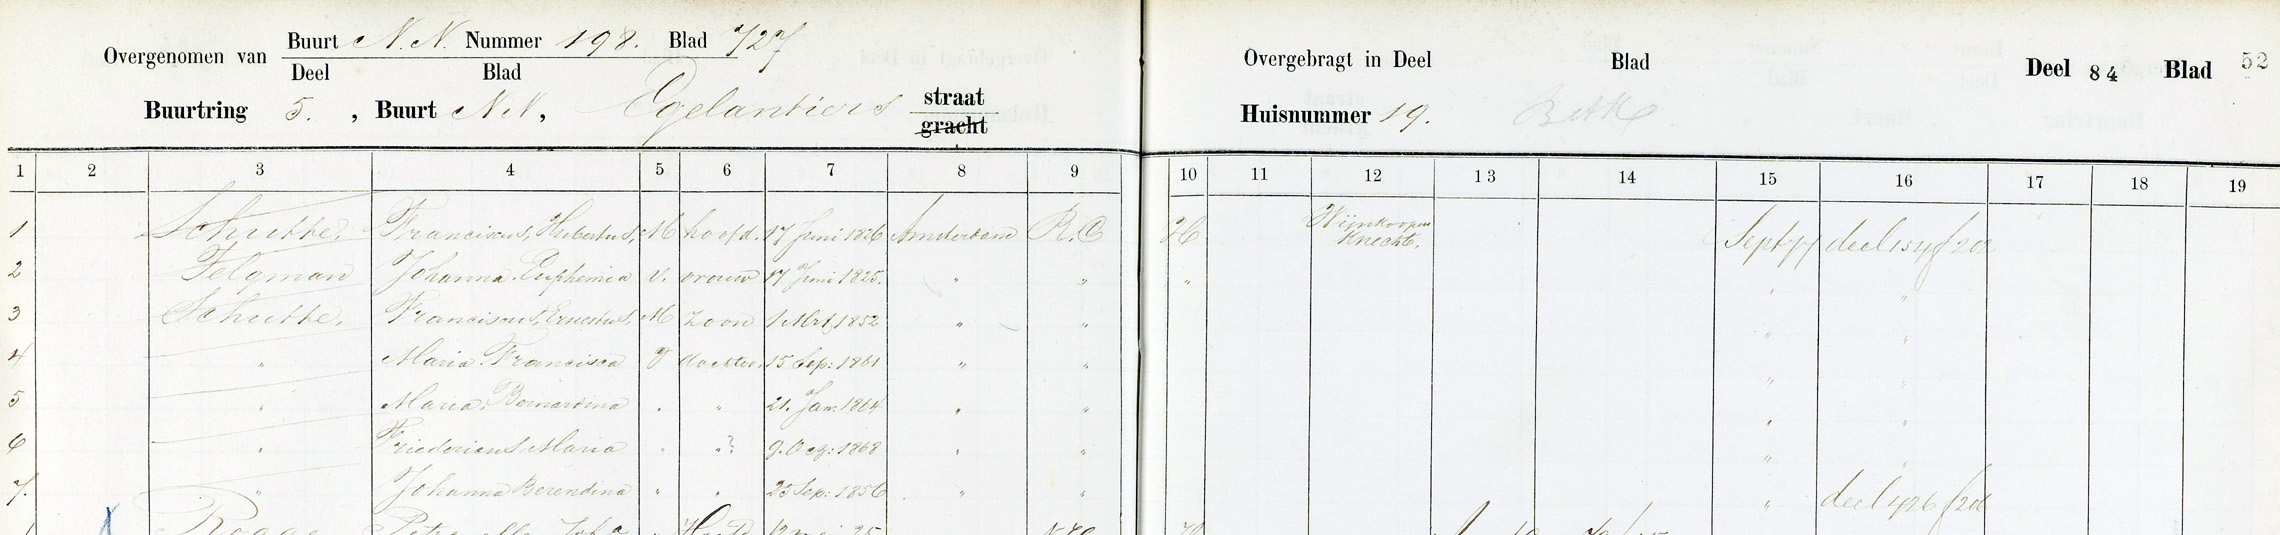 Overgenomen van Buurt N.N. Nummer 198. Blad 727
Deel Blad
Buurtring 5. , Buurt N.N, Egelantiers straat gracht
Overgebragt in Deel Blad Deel 84 Blad 52
Huisnummer 19.
1 2 3 4 5 6 7 8 9 10 11 12 13 14 15 16 17 18 19
1 Schutte, Franciscus, Hubertus, M hoofd. 17 Juni 1826 Amsterdam R.C H Wijnkoopers Knecht. Sept 77 deel 154 f 202
2 Felgman Johanna Euphemia V. vrouw 17 Juni 1825. " " " " "
3 Schutte, Franciscus, Ernestus, M Zoon 1 Mrt 1852 " " " "
4 " Maria Francisca V dochter 15 Sep: 1861 " " " "
5 " Maria, Bernardina " " 21. Jan 1864 " " " "
6 " Friedericus Maria " "? 9. Aug: 1868 " " " "
7. " Johanna Berendina " " 25 Sep: 1856 " " " deel 426 f
Rogge Joha Hoofd